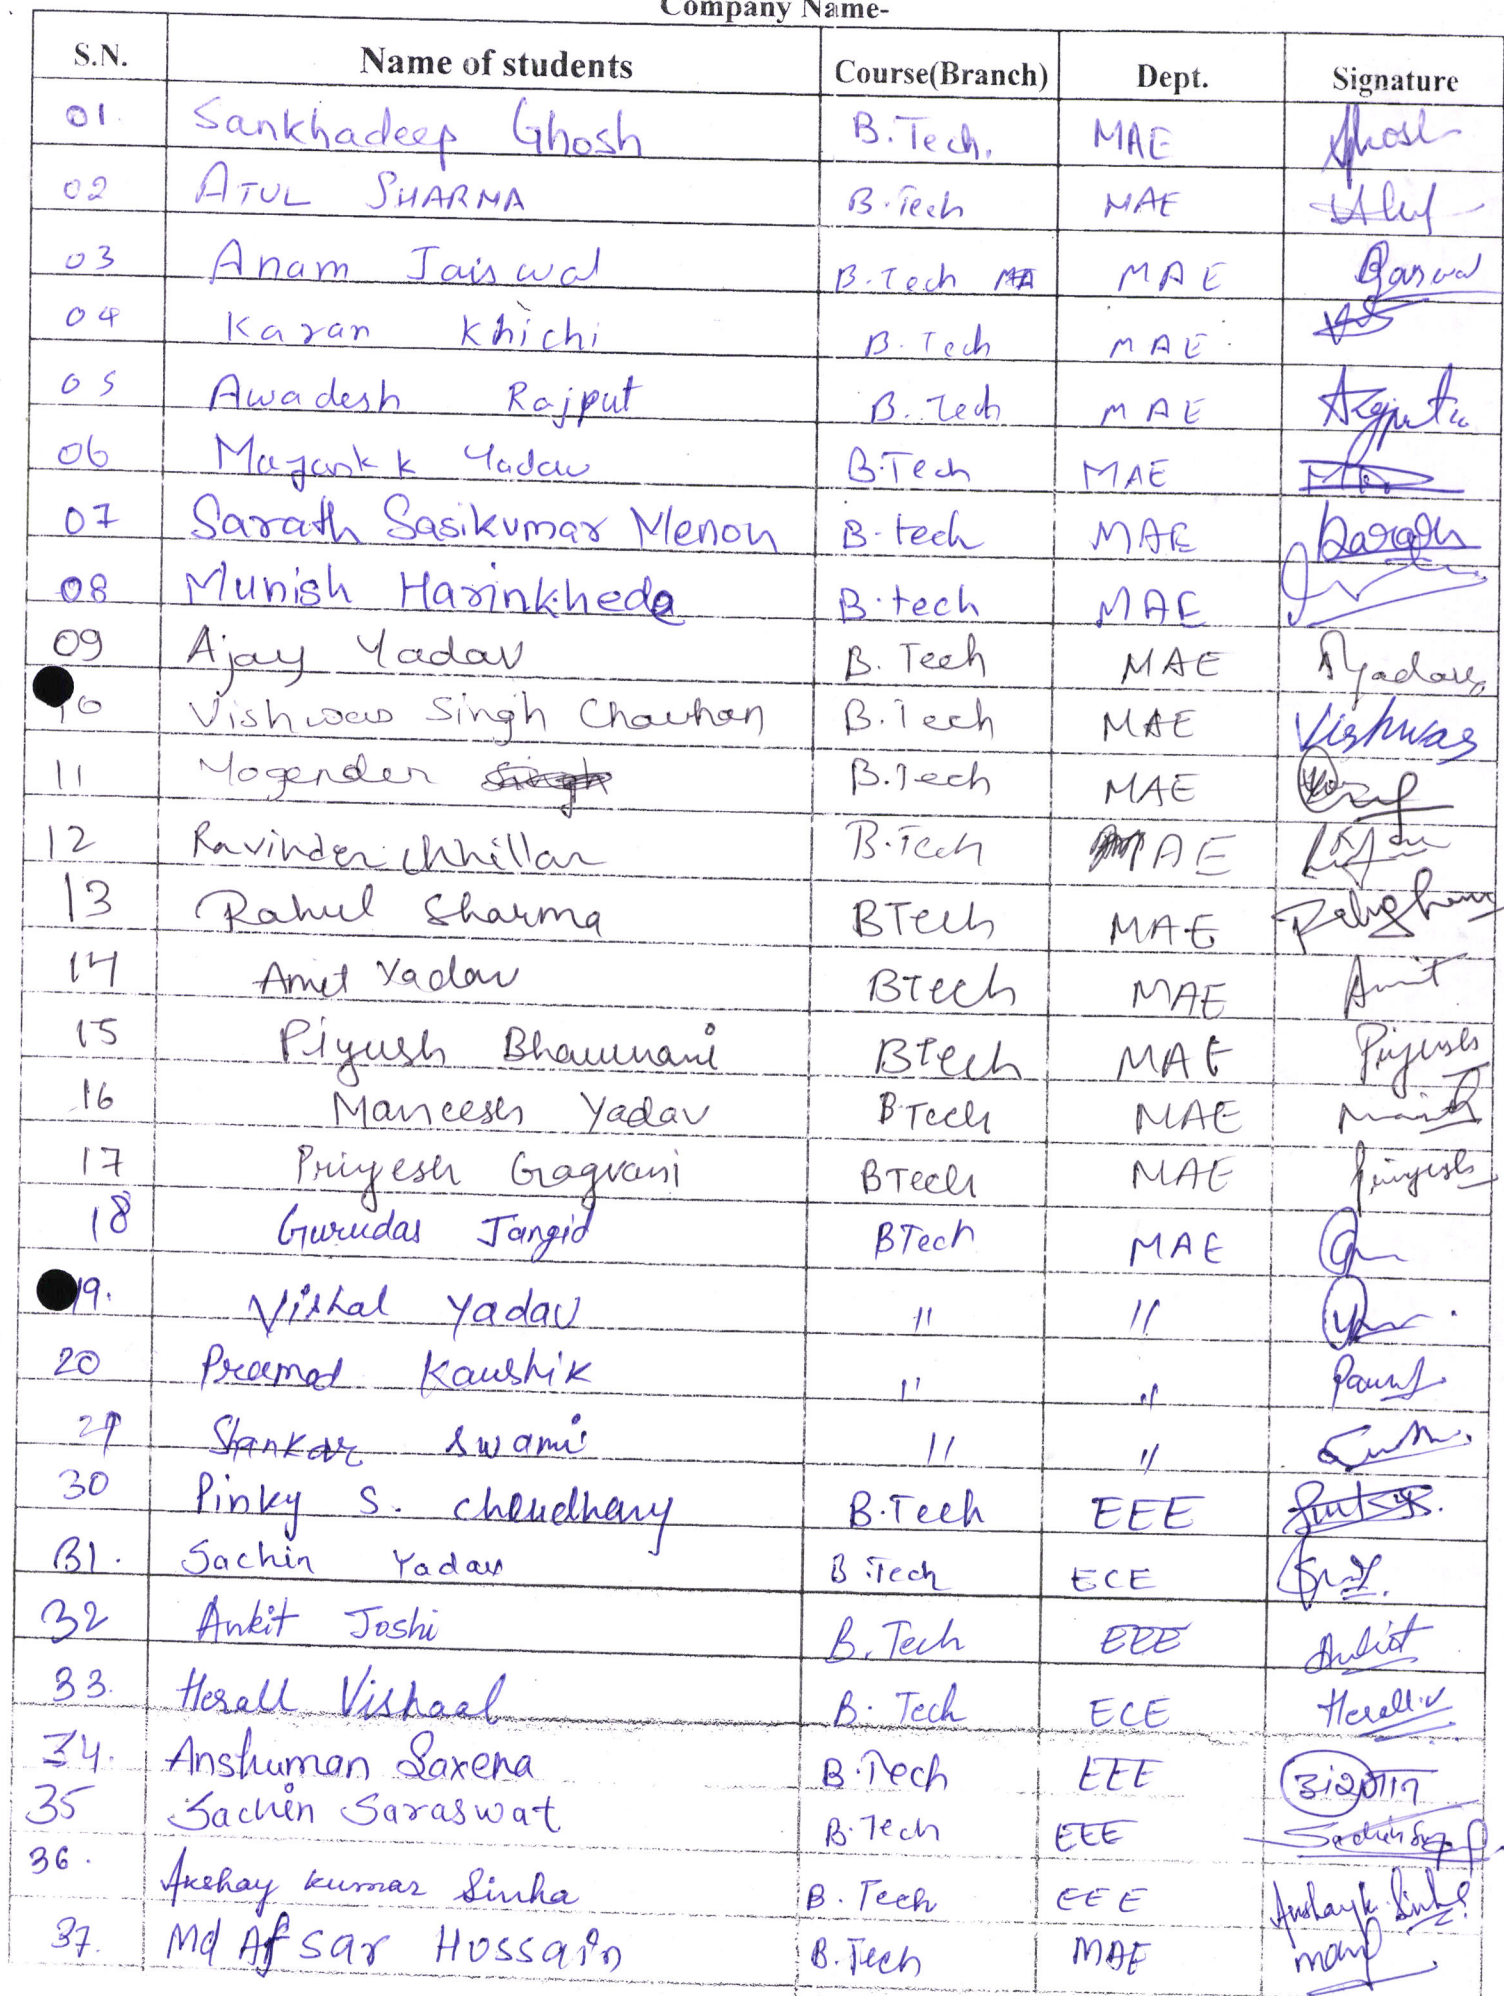 Company Name-
S.N. Name of students Course(Branch) Dept. Signature
01. Sankhadeep Ghosh B.Tech. MAE Ghosh
02 ATUL SHARMA B.Tech MAE
03 Anam Jaiswal B.Tech MAE
04 Karan Khichi B.Tech MAE
05 Awadesh Rajput B.Tech MAE
06 Mayank K Yadav B.Tech MAE
07 Sarath Sasikumar Menon B.tech MAE Sarath
08 Munish Harinkhede B.tech MAE
09 Ajay Yadav B.Tech MAE AYadav
10 Vishwas Singh Chauhan B.Tech MAE Vishwas
11 Yogender B.Tech MAE
12 Ravinder Chhillar B.Tech MAE
13 Rahul Sharma BTech MAE
14 Amit Yadav BTech MAE Amit
15 Piyush Bhawnani BTech MAE Piyush
16 Maneesh Yadav BTech MAE
17 Priyesh Gagvani BTech MAE Priyesh
18 Gurudas Jangid BTech MAE
19. Vishal Yadav " "
20 Pramod Kaushik " "
21 Shankar Swami " "
30 Pinky S. Choudhary B.Tech EEE
31. Sachin Yadav B.Tech ECE
32 Ankit Joshi B.Tech EEE Ankit
33. Herall Vishaal B.Tech ECE Herall.V
34. Anshuman Saxena B.Tech EEE
35 Sachin Saraswat B.Tech EEE
36. Akshay Kumar Sinha B.Tech EEE Akshay K. Sinha
37. Md Afsar Hossain B.Tech MAE